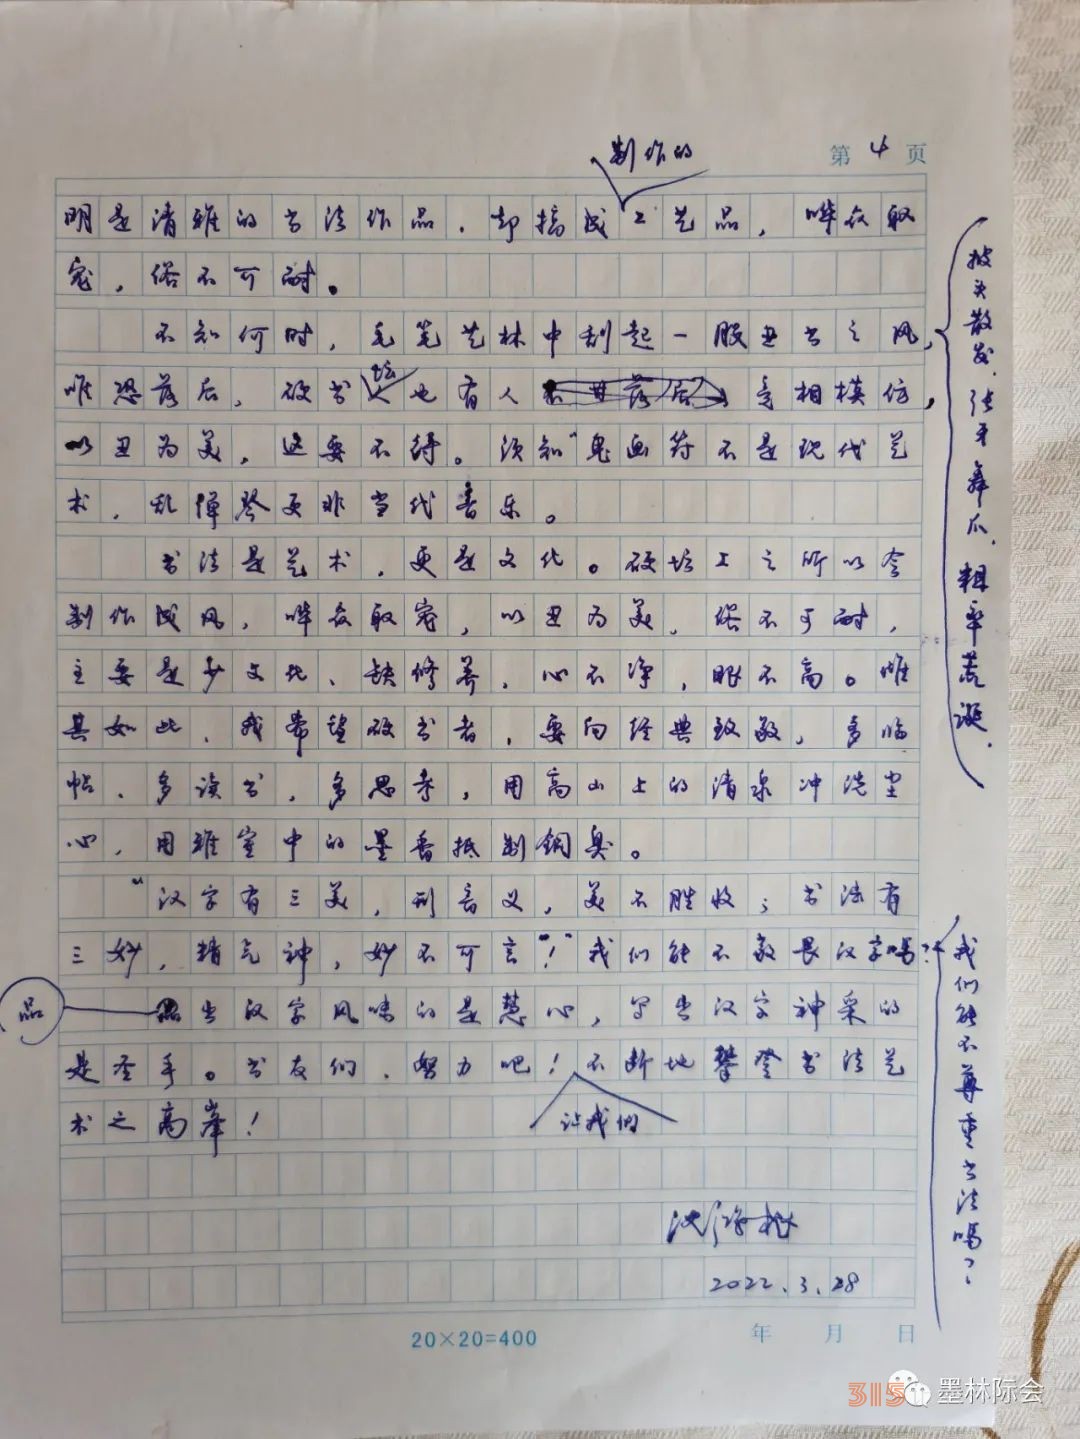 第 4 页
制作的
明是清雅的书法作品，却搞成工艺品，哗众取
宠，俗不可耐。
不知何时，毛笔艺林中刮起一股丑书之风，
披头散发、张牙舞爪、粗率荒诞，
唯恐落后，硬书坛也有人竞相模仿，
以丑为美，这要不得。须知“鬼画符不是现代艺
术，乱弹琴更非当代音乐。
书法是艺术，更是文化。硬坛上之所以会
制作成风，哗众取宠，以丑为美，俗不可耐，
主要是少文化、缺修养，心不净，眼不高。唯
其如此，我希望硬书者，要向经典致敬，多临
帖、多读书，多思考，用高山上的清泉冲洗尘
心，用雅室中的墨香抵制铜臭。
“汉字有三美，形音义，美不胜收；书法有
三妙，精气神，妙不可言”！我们能不敬畏汉字吗？
我们能不尊重书法吗？
品
出汉字风味的是慧心，写出汉字神采的
是圣手。书友们，努力吧！不断地攀登书法艺
术之高峰！
让我们
沈鸿根
2022.3.28
20×20=400
年 月 日
315
墨林际会